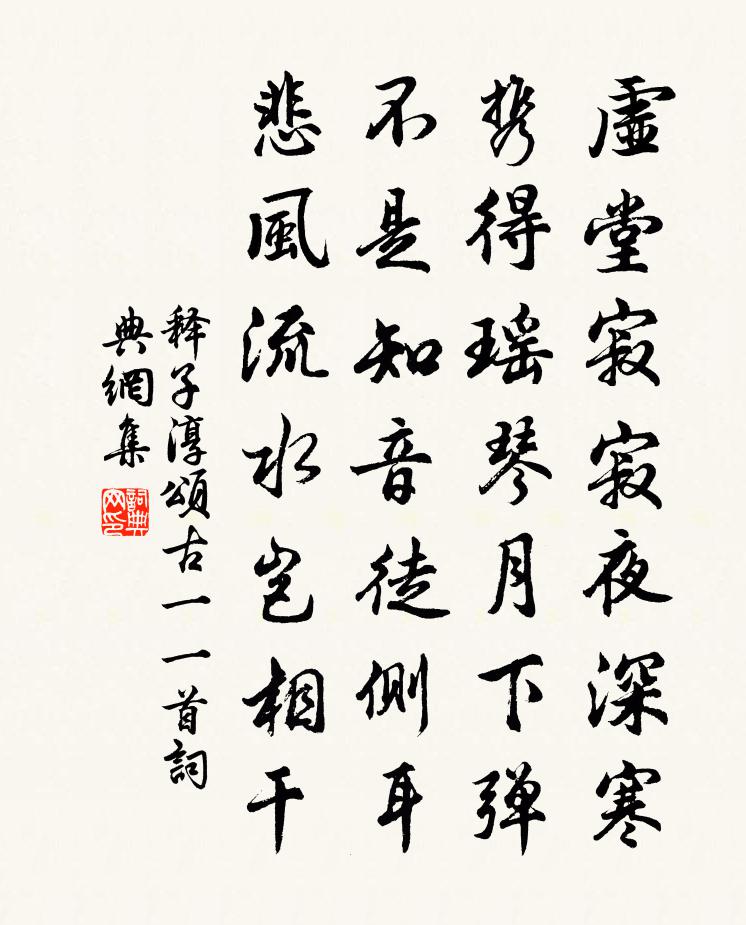 虚堂寂寂夜深寒
携得瑶琴月下弹
不是知音徒侧耳
悲風流水岂相干
释子淳頌古一一首詞
典網集
詞典
网印